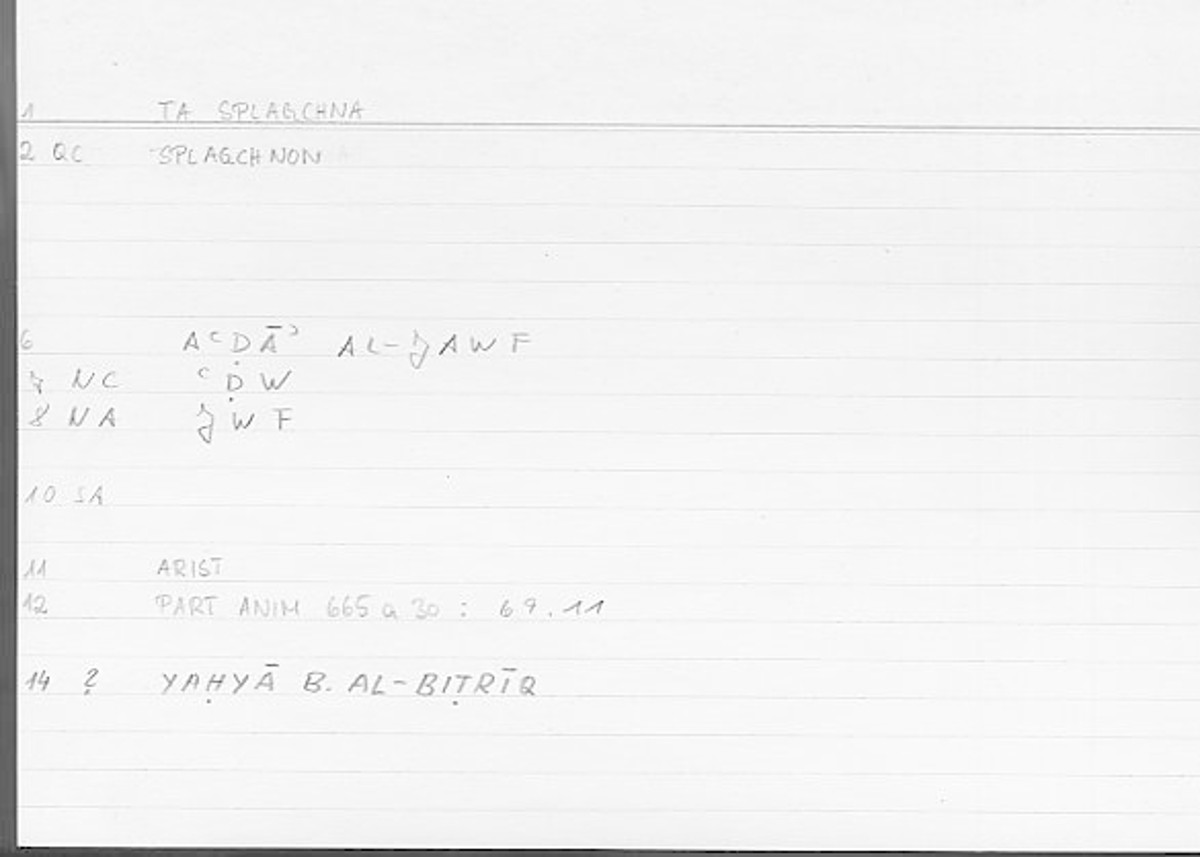 1 TA SPLAGCHNA
2 QC SPLAGCHNON
6 AʿḌĀʾ AL-JAWF
7 NC ʿḌW
8 NA JWF
10 SA
11 ARIST
12 PART ANIM 665 a 30 : 69.11
14 ? YAḤYĀ B. AL-BIṬRĪQ